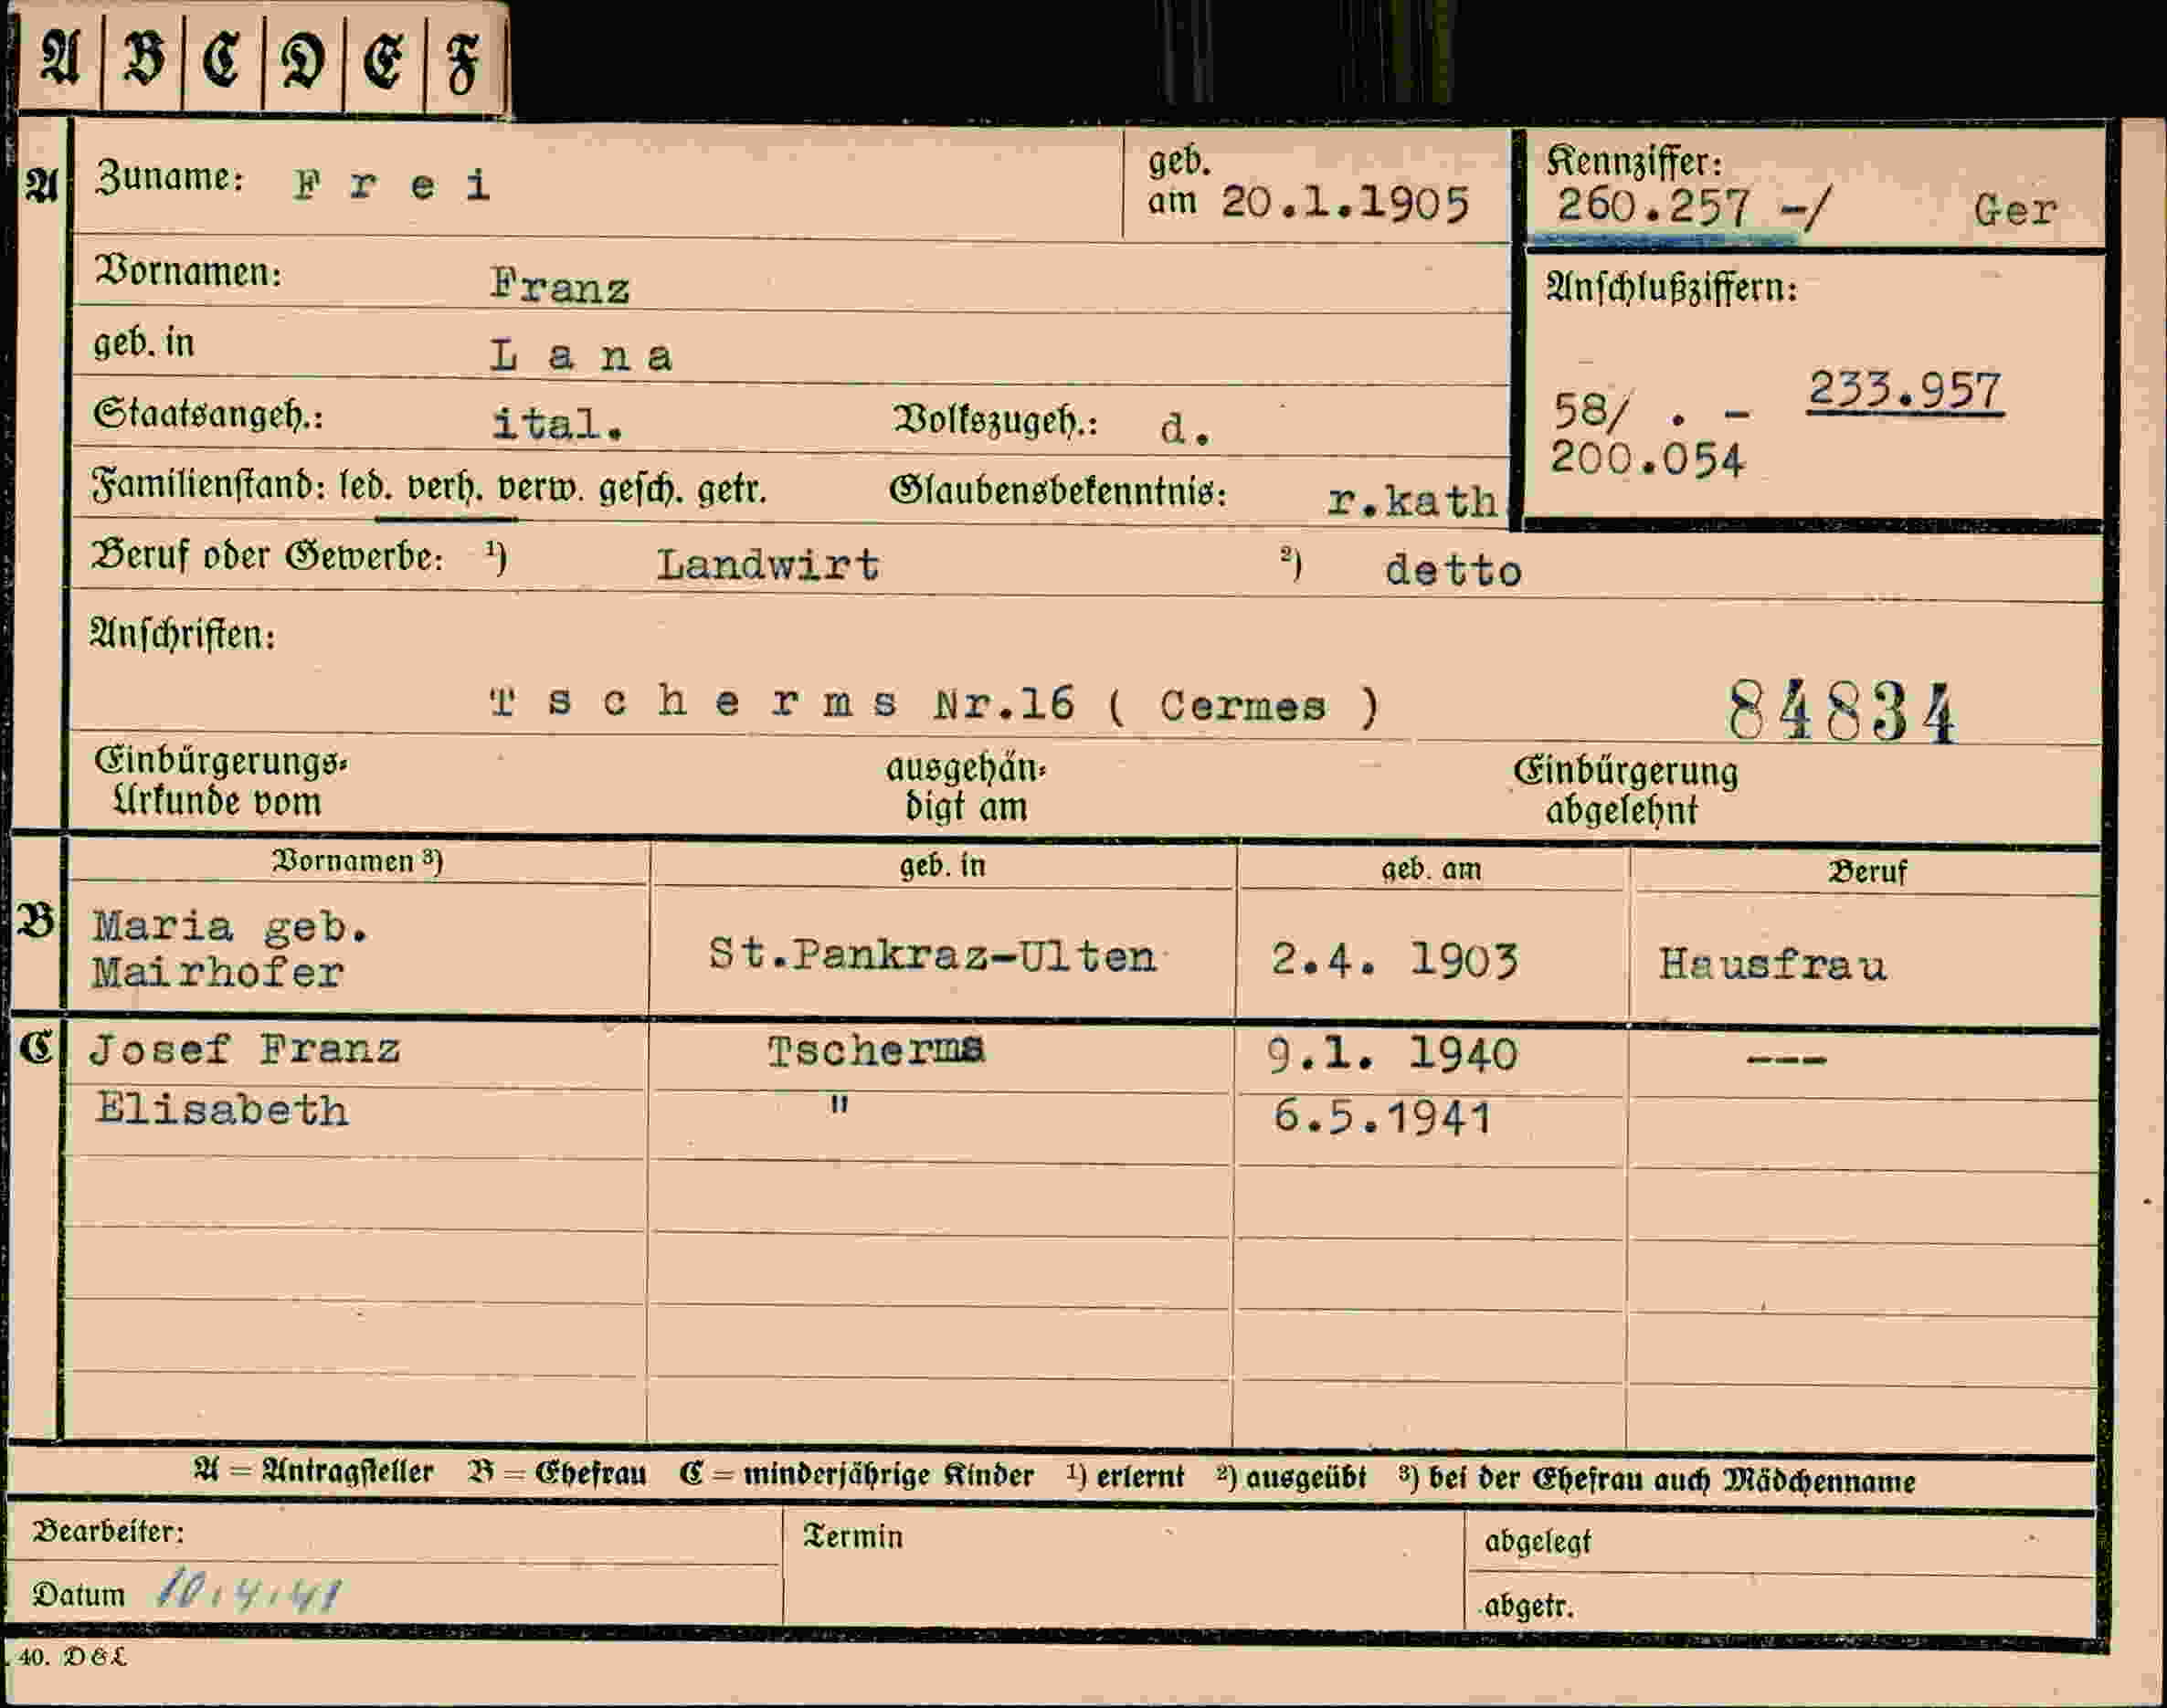 A B C D E F
A Zuname: F r e i geb. am 20.1.1905 Kennziffer: 260.257 -/ Ger
Vornamen: Franz
Anschlußziffern:
geb. in L a n a
58/ . - 233.957
200.054
Staatsangeh.: ital. Volkszugeh.: d.
Familienstand: led. verh. verw. gesch. getr. Glaubensbekenntnis: r.kath
Beruf oder Gewerbe: ¹) Landwirt ²) detto
Anschriften:
T s c h e r m s Nr.16 ( Cermes ) 84834
Einbürgerungs-
Urkunde vom
ausgehän-
digt am
Einbürgerung
abgelehnt
Vornamen ³) geb. in geb. am Beruf
B Maria geb.
Mairhofer St.Pankraz-Ulten 2.4. 1903 Hausfrau
C Josef Franz Tscherms 9.1. 1940 ---
Elisabeth " 6.5.1941
A = Antragsteller B = Ehefrau C = minderjährige Kinder ¹) erlernt ²) ausgeübt ³) bei der Ehefrau auch Mädchenname
Bearbeiter: Termin abgelegt
Datum 10.4.41 abgetr.
40. D&L